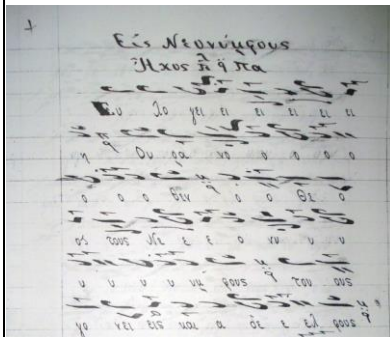 Εἰς Νεονύμφους
Ἦχος π̈ q πα
Ευ λο γει ει ει ει ει ει
η Ου ρα νο ο ο ο ο
ο ο ο θεν ο ο Θε ο
ος τους Νε ε ε ο νυ υ υ
υ υ υ υ υμ φους του ους
γο νει εις και α δε ε ελ φους